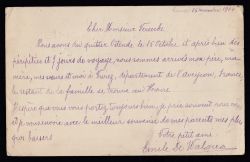 15 novembre 1914
Cher Monsieur
Nous avons dû quitter Ostende le 15 Octobre et après bien des
péripéties et 7 jours de voyage, nous sommes arrivés mon père, ma
mère, mes sœurs et moi à département de l'Aveyron, France
le restant de la famille se trouve au Havre
J'espère que vous vous portez toujours bien, je
et je vous envoie avec le meilleur souvenir de mes parents mes plus
gros baisers
Votre petit ami
Emile De